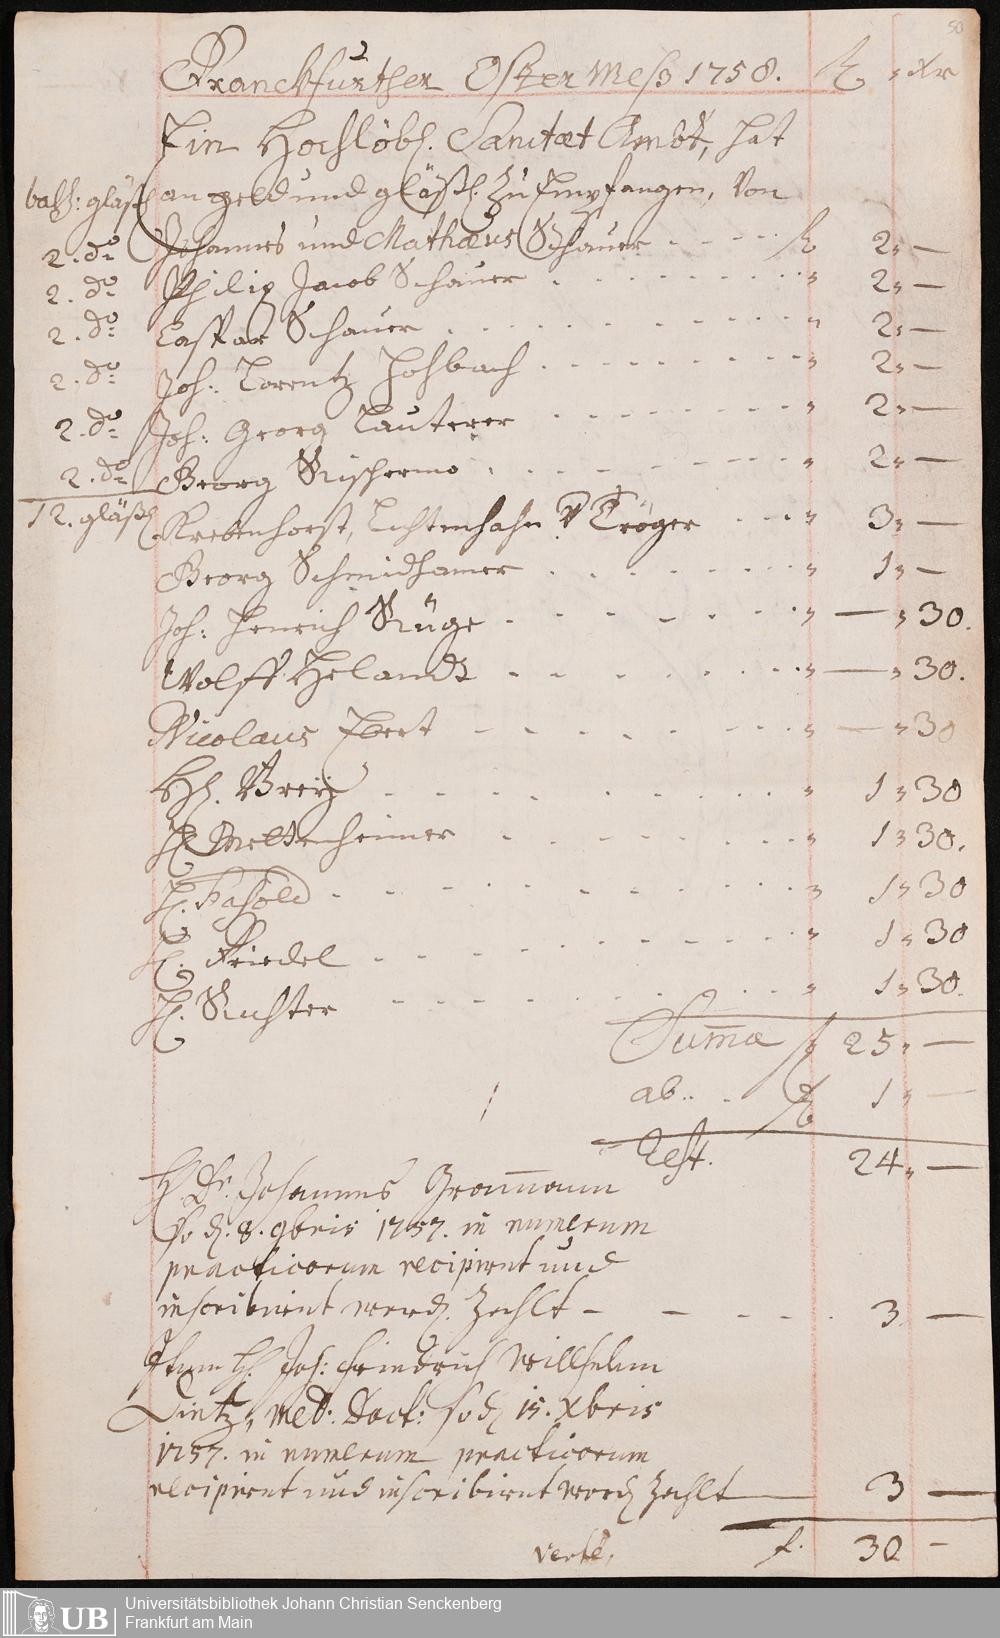 50
Franckfurther Oster Meß 1758. fl. Xr
Ein Hochlöbl. Sanitæt Ambt, hat
an geld und gläßl. zu Empfangen, Von
bals: gläßl
2. do Johannes und Mathæus Schauer - - - fl 2 " —
2. do Philip Jacob Schauer . . . . " 2 " —
2. do Caspar Schauer . . . . " 2 " —
2. do Joh: Lorentz Hohbach . . . . " 2 " —
2. do Joh: Georg Lauterer - - - - " 2 " —
2. do Georg - - - - " 2 " —
12. gläßl Krebenhorst, Lichtenhahn & Tröger - - - " 3 " —
Georg Schmidhamer . . . . " 1 " —
Joh: Henrich Rüge - - - - " — " 30.
Wolff Helandt - - - - " — " 30.
Nicolaus Ebert - - - - " — " 30
Hl. - - - - " 1 " 30
H. - - - - " 1 " 30.
H. Fasold - - - - " 1 " 30
H. Friedel - - - - " 1 " 30
H. Richter - - - - " 1 " 30.
Summa fl 25 " —
ab.. . fl 1 " —
Rest. 24 " —
H Dr. Johannes Gramann
so d. 8. 9bris 1757. in numerum
practicorum recipirt und
inscribirt word. Zahlt - - - - 3. —
Item H. Joh: Friedrich Willhelm
Dietz, Med: Doct: so d. 15. Xbris
1757. in numerum practicorum
recipirt und inscribirt word Zahlt — 3 —
verte, f. 30 -
UB
Universitätsbibliothek Johann Christian Senckenberg
Frankfurt am Main